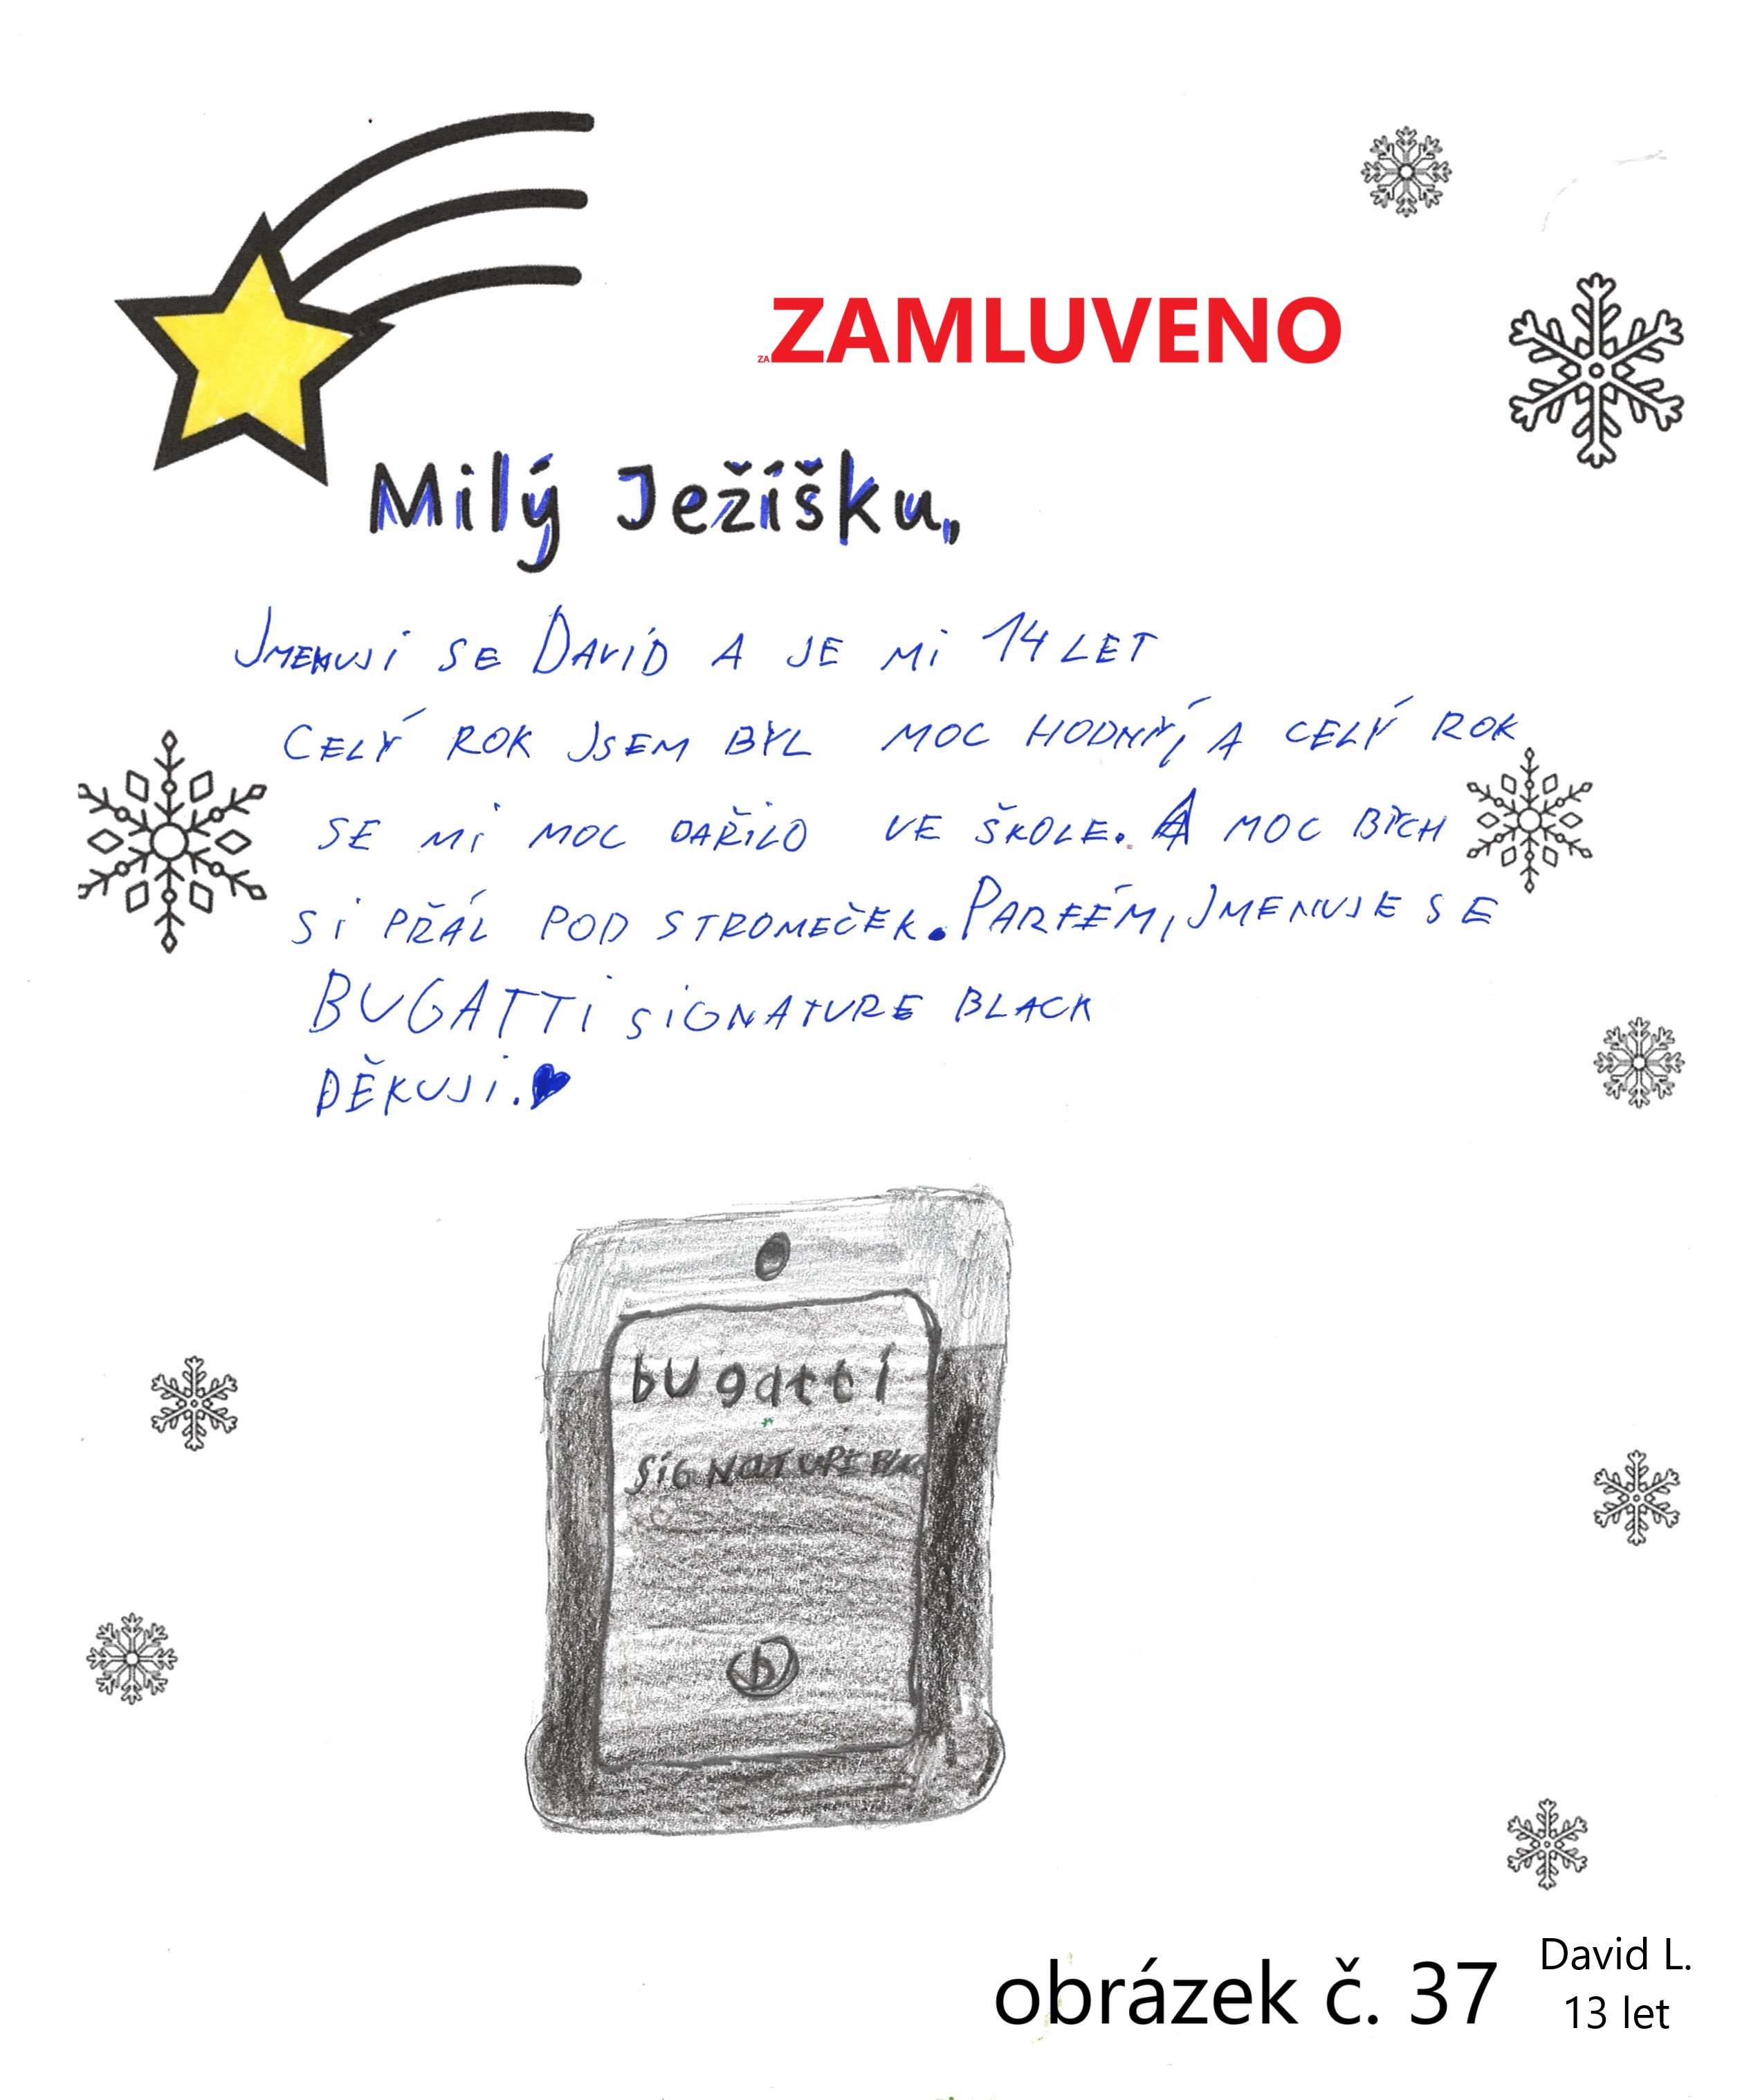 ZAZAMLUVENO
Milý Ježíšku,
JMENUJI SE DAVID A JE MI 14 LET
CELÝ ROK JSEM BYL MOC HODNÝ, A CELÝ ROK
SE MI MOC DAŘILO VE ŠKOLE. A MOC BYCH
SI PŘÁL POD STROMEČEK. PARFÉM, JMENUJE SE
BUGATTI SIGNATURE BLACK
DĚKUJI.
bugatti
SIGNATURE
b
obrázek č. 37
David L.
13 let